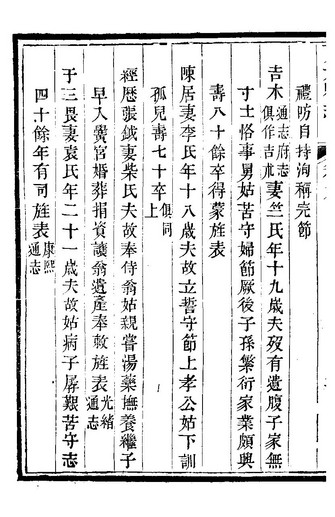 禮昉自持洵稱完節
吉木通志府志俱作吉朮妻竺氏年十九歲夫歿有遺腹子家無
寸土恪事舅姑苦守婦節厥後子孫繁衍家業頗興
壽八十餘卒得蒙旌表
陳居妻李氏年十八歲夫故立誓守節上孝公姑下訓
孤兒壽七十卒俱同上
經歷張鉞妻柴氏夫故奉侍翁姑親嘗湯藥撫養繼子
早入黌宮婚葬捐資讓翁遺產奉敕旌表光緒通志
于三畏妻袁氏年二十一歲夫故姑病子孱艱苦守志
四十餘年有司旌表康熙通志